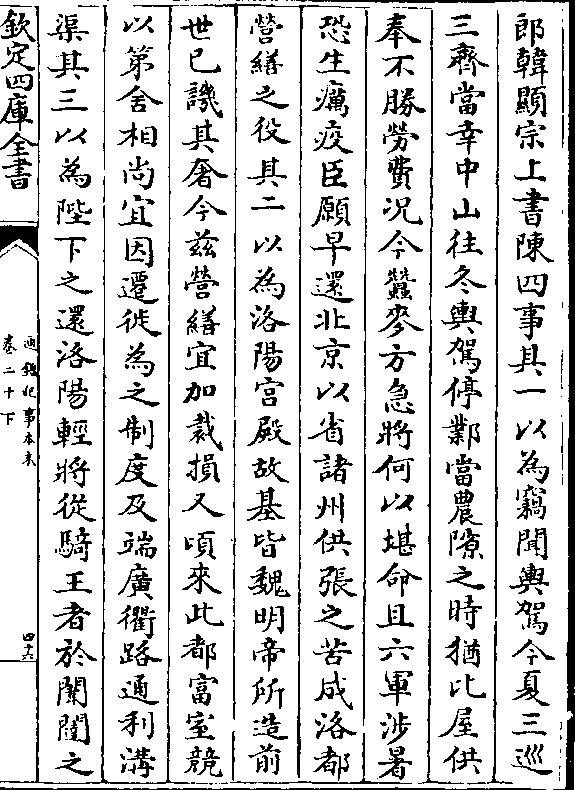 郎韓顯宗上書陳四事其一以為竊聞輿駕今夏三巡
三齊當幸中山往冬輿駕停鄴當農隙之時猶比屋供
奉不勝勞費况今蠶麥方急將何以堪命且六軍涉暑
恐生癘疫臣願早還北京以省諸州供張之苦成洛都
營繕之役其二以為洛陽宫殿故基皆魏明帝所造前
世已譏其奢今兹營繕宜加裁損又頃來北都富室競
以第舍相尚宜因遷徙為之制度及端廣衢路通利溝
渠其三以為陛下之還洛陽輕將從騎王者於闈闥之
欽定四庫全書
通鑑紀事本末
卷二十下
四十六